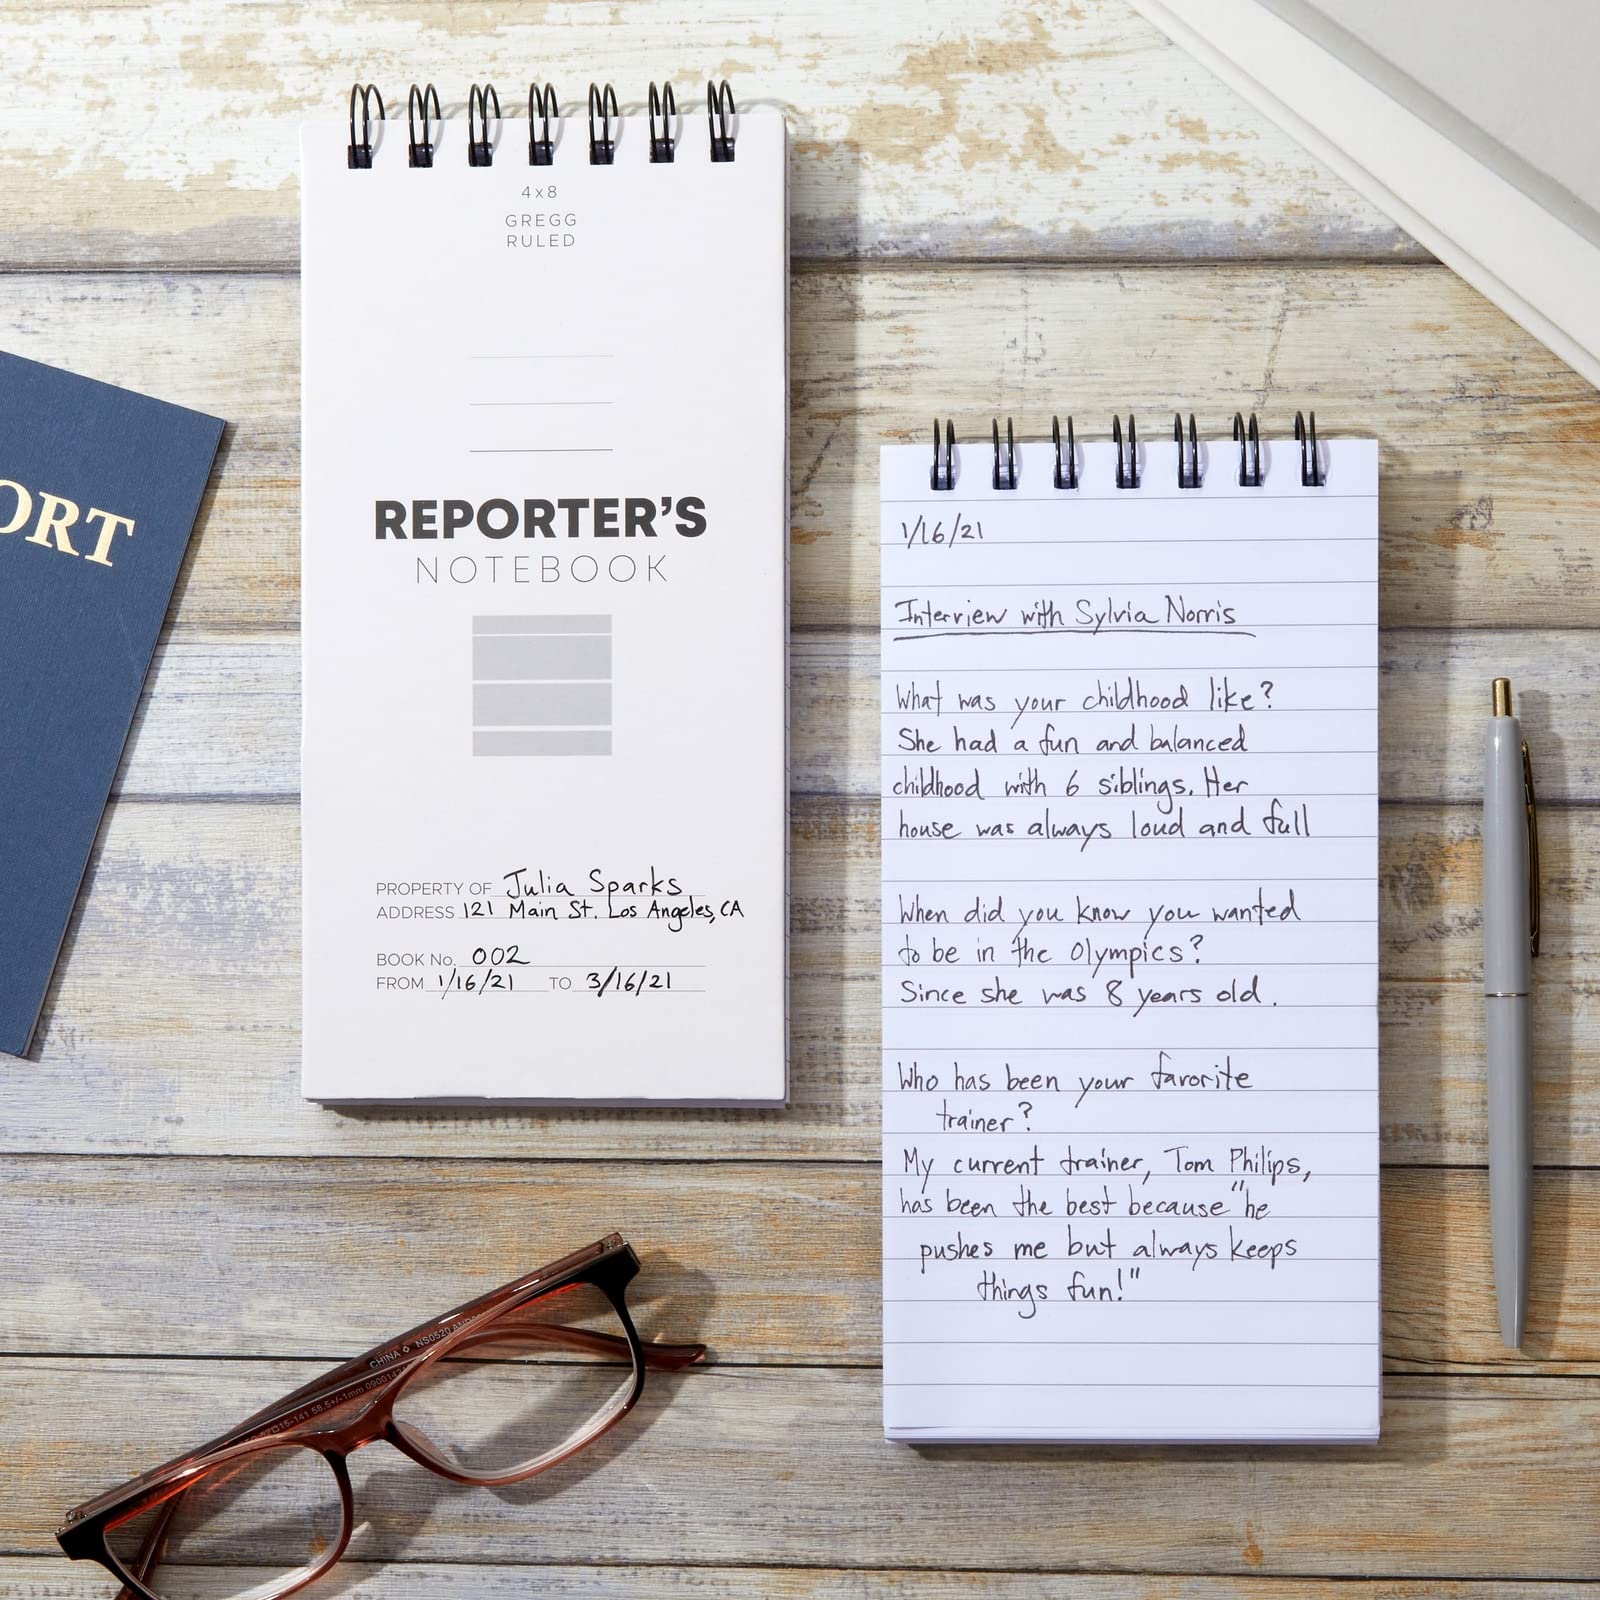 4x8
GREGG
RULED
REPORTER'S
NOTEBOOK
PROPERTY OF Julia Sparks
ADDRESS 121 Main St. Los Angeles, CA
BOOK No. 002
FROM 1/16/21 TO 3/16/21
ORT
1/16/21
Interview with Sylvia Norris
What was your childhood like?
She had a fun and balanced
childhood with 6 siblings. Her
house was always loud and full
When did you know you wanted
to be in the Olympics?
Since she was 8 years old.
Who has been your favorite
trainer?
My current trainer, Tom Philips,
has been the best because "he
pushes me but always keeps
things fun!"
CHINA NS0520
15-141 56.5+/-1mm